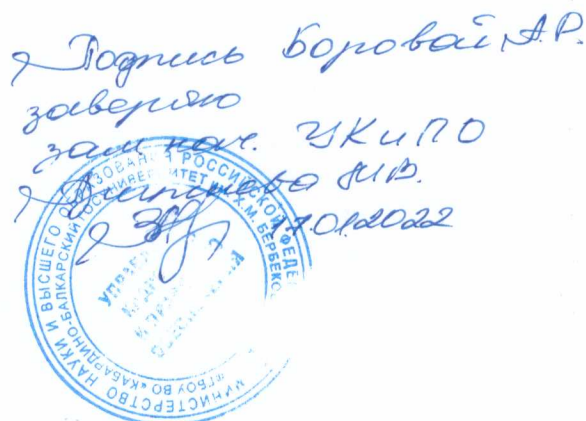 Подпись Боровой А.Р.
заверяю
зам. нач. УКиПО
М.В.
17.01.2022
МИНИСТЕРСТВО НАУКИ И ВЫСШЕГО ОБРАЗОВАНИЯ РОССИЙСКОЙ ФЕДЕ
ФГБОУ ВО «КАБАРДИНО-БАЛКАРСКИЙ ГОСУНИВЕРСИТЕТ Х.М. БЕРБЕКО
Управ